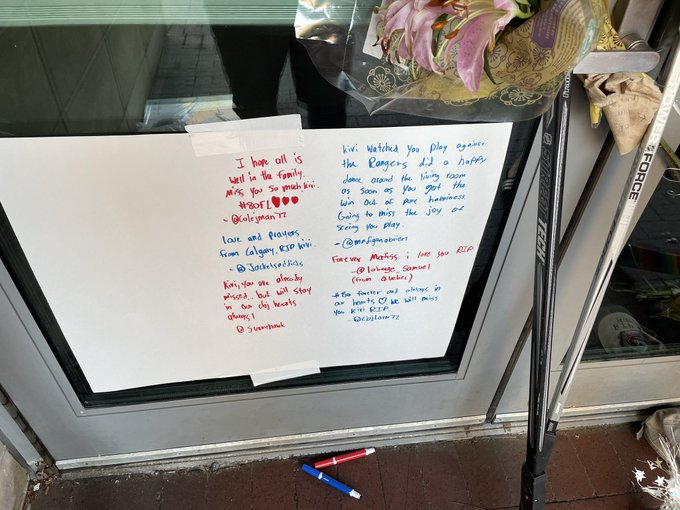 I hope all is
well in the family.
Miss you so much kivi.
#80FL
- @Colejman72
Love and prayers
from Calgary. RIP kivi.
- @Jacketsaddicts
Kivi, you are already
missed but will stay
in our cbj hearts
always!
@sunnyhawk
kivi watched you play against
the Rangers did a happy
dance around the living room
as soon as you got the
win out of pure happiness.
Going to miss the joy of
seeing you play.
- @madiganobrien
Forever Matiss i love you RIP
-@labarge_samuel
(from Quebec)
#80 forever and always in
our hearts we will miss
you kivi RIP
- @cbjlover72
TECH
FORCE